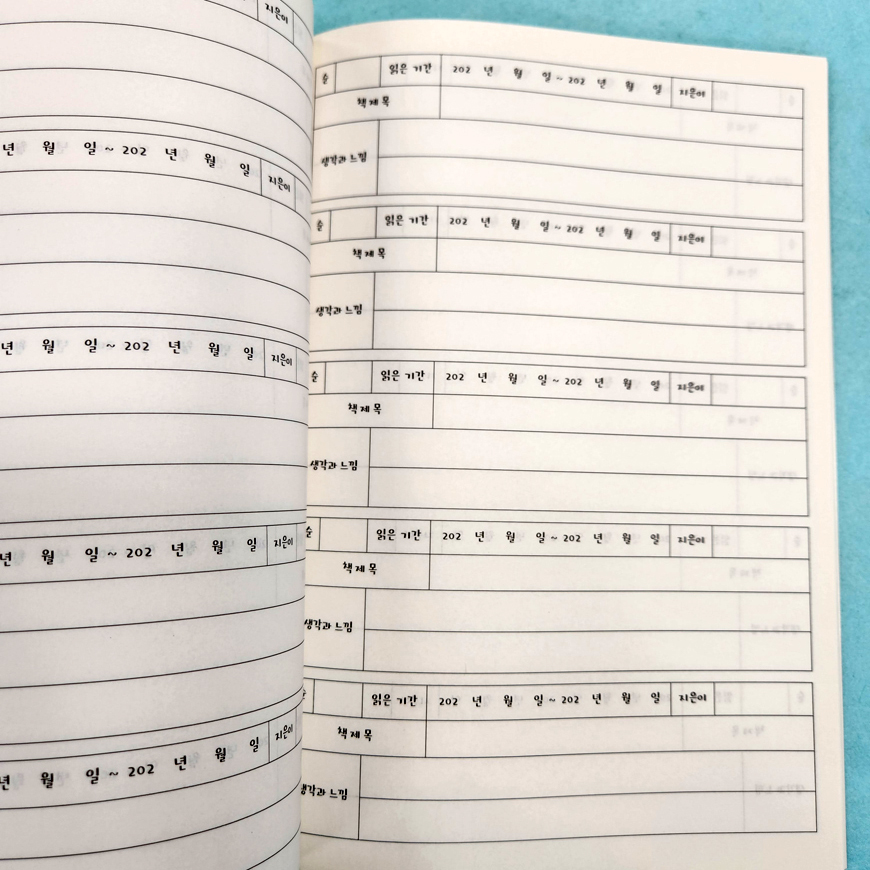 지은이
년 월 일 ~ 202 년 월 일 지은이
년 월 일 ~ 202 년 월 일 지은이
년 월 일 ~ 202 년 월 일 지은이
년 월 일 ~ 202 년 월 일 지은이
읽은 기간 202 년 월 일 ~ 202 년 월 일 지은이
책 제 목
생각과 느낌
읽은 기간 202 년 월 일 ~ 202 년 월 일 지은이
책 제 목
생각과 느낌
읽은 기간 202 년 월 일 ~ 202 년 월 일 지은이
책 제 목
생각과 느낌
읽은 기간 202 년 월 일 ~ 202 년 월 일 지은이
책 제 목
생각과 느낌
읽은 기간 202 년 월 일 ~ 202 년 월 일 지은이
책 제 목
생각과 느낌